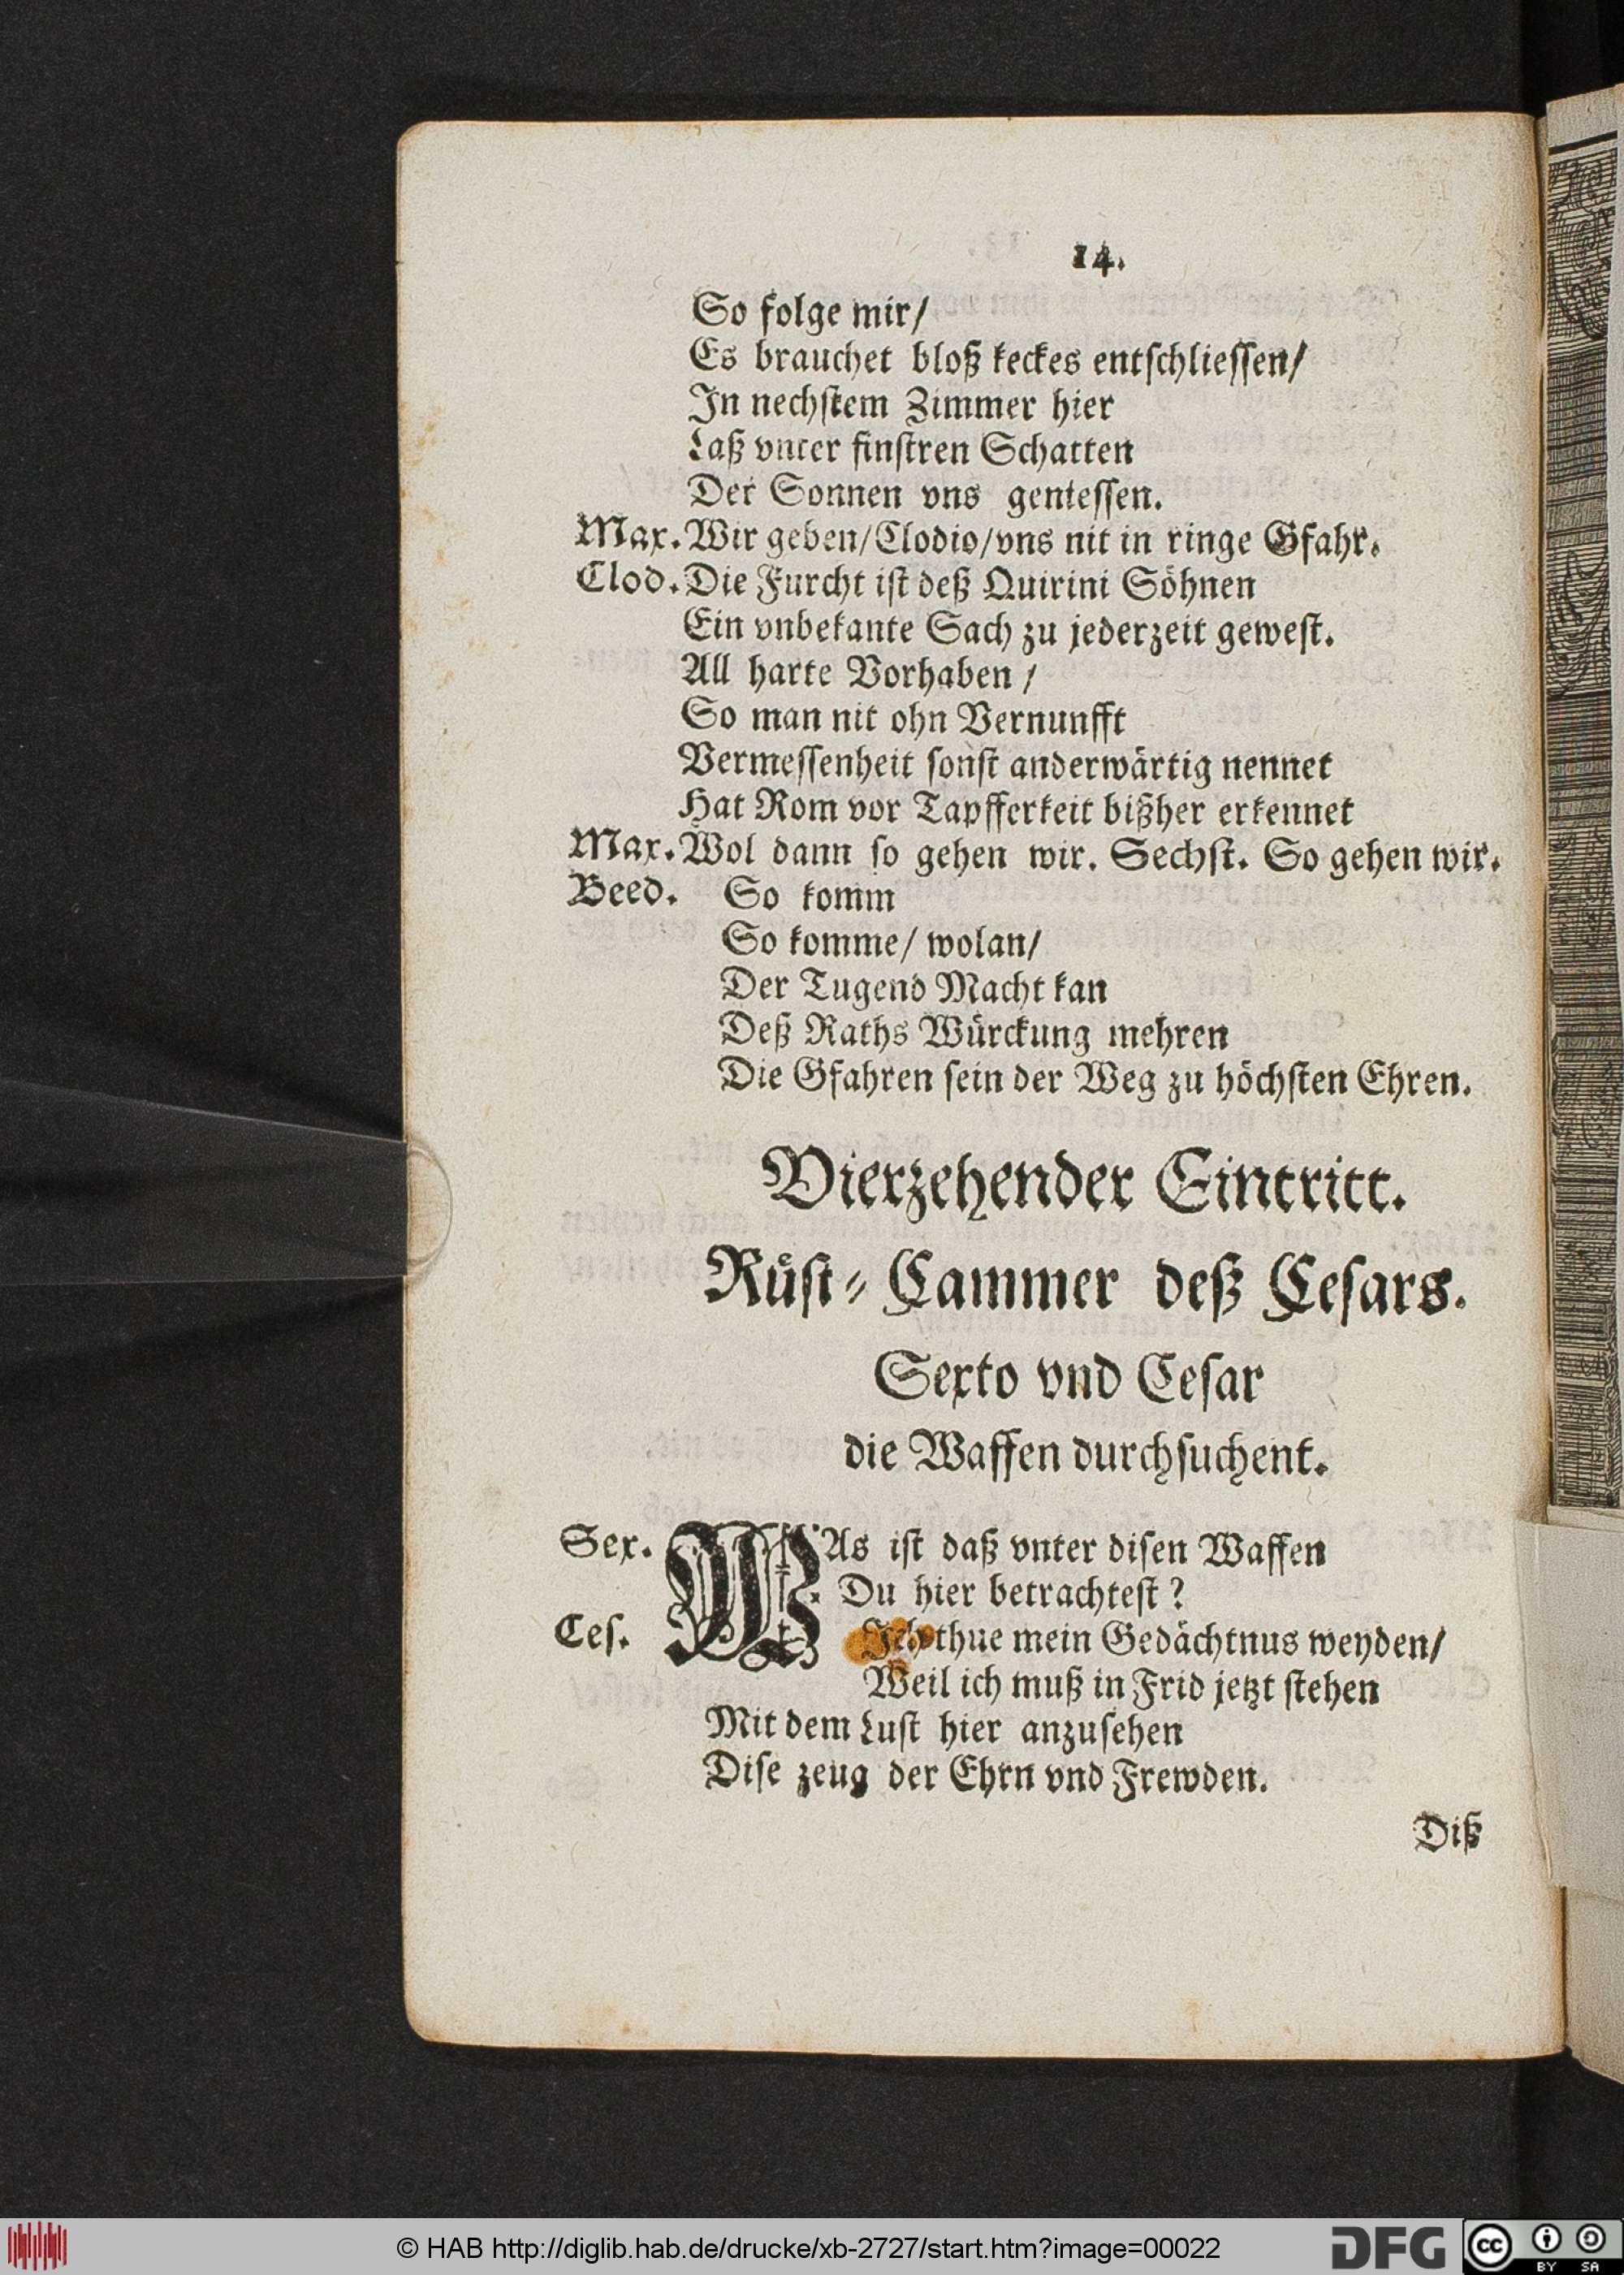 14.
So folge mir/
Es brauchet bloß keckes entschliessen/
In nechstem Zimmer hier
Laß vnter finstren Schatten
Der Sonnen vns geniessen.
Max. Wir geben/Clodio/vns nit in ringe Gfahr.
Clod. Die Furcht ist deß Quirini Söhnen
Ein vnbekante Sach zu jederzeit gewest.
All harte Vorhaben /
So man nit ohn Vernunfft
Vermessenheit sonst anderwärtig nennet
Hat Rom vor Tapfferkeit bißher erkennet
Max. Wol dann so gehen wir. Sechst. So gehen wir.
Beed. So komm
So komme/ wolan/
Der Tugend Macht kan
Deß Raths Würckung mehren
Die Gfahren sein der Weg zu höchsten Ehren.
Vierzehender Eintritt.
Rüst-Cammer deß Cesars.
Sexto vnd Cesar
die Waffen durchsuchent.
Sex. WAs ist daß vnter disen Waffen
Du hier betrachtest?
Ces. Ich thue mein Gedächtnus weyden/
Weil ich muß in Frid jetzt stehen
Mit dem Lust hier anzusehen
Dise zeug der Ehrn vnd Frewden.
Diß
© HAB http://diglib.hab.de/drucke/xb-2727/start.htm?image=00022
DFG
cc
BY SA